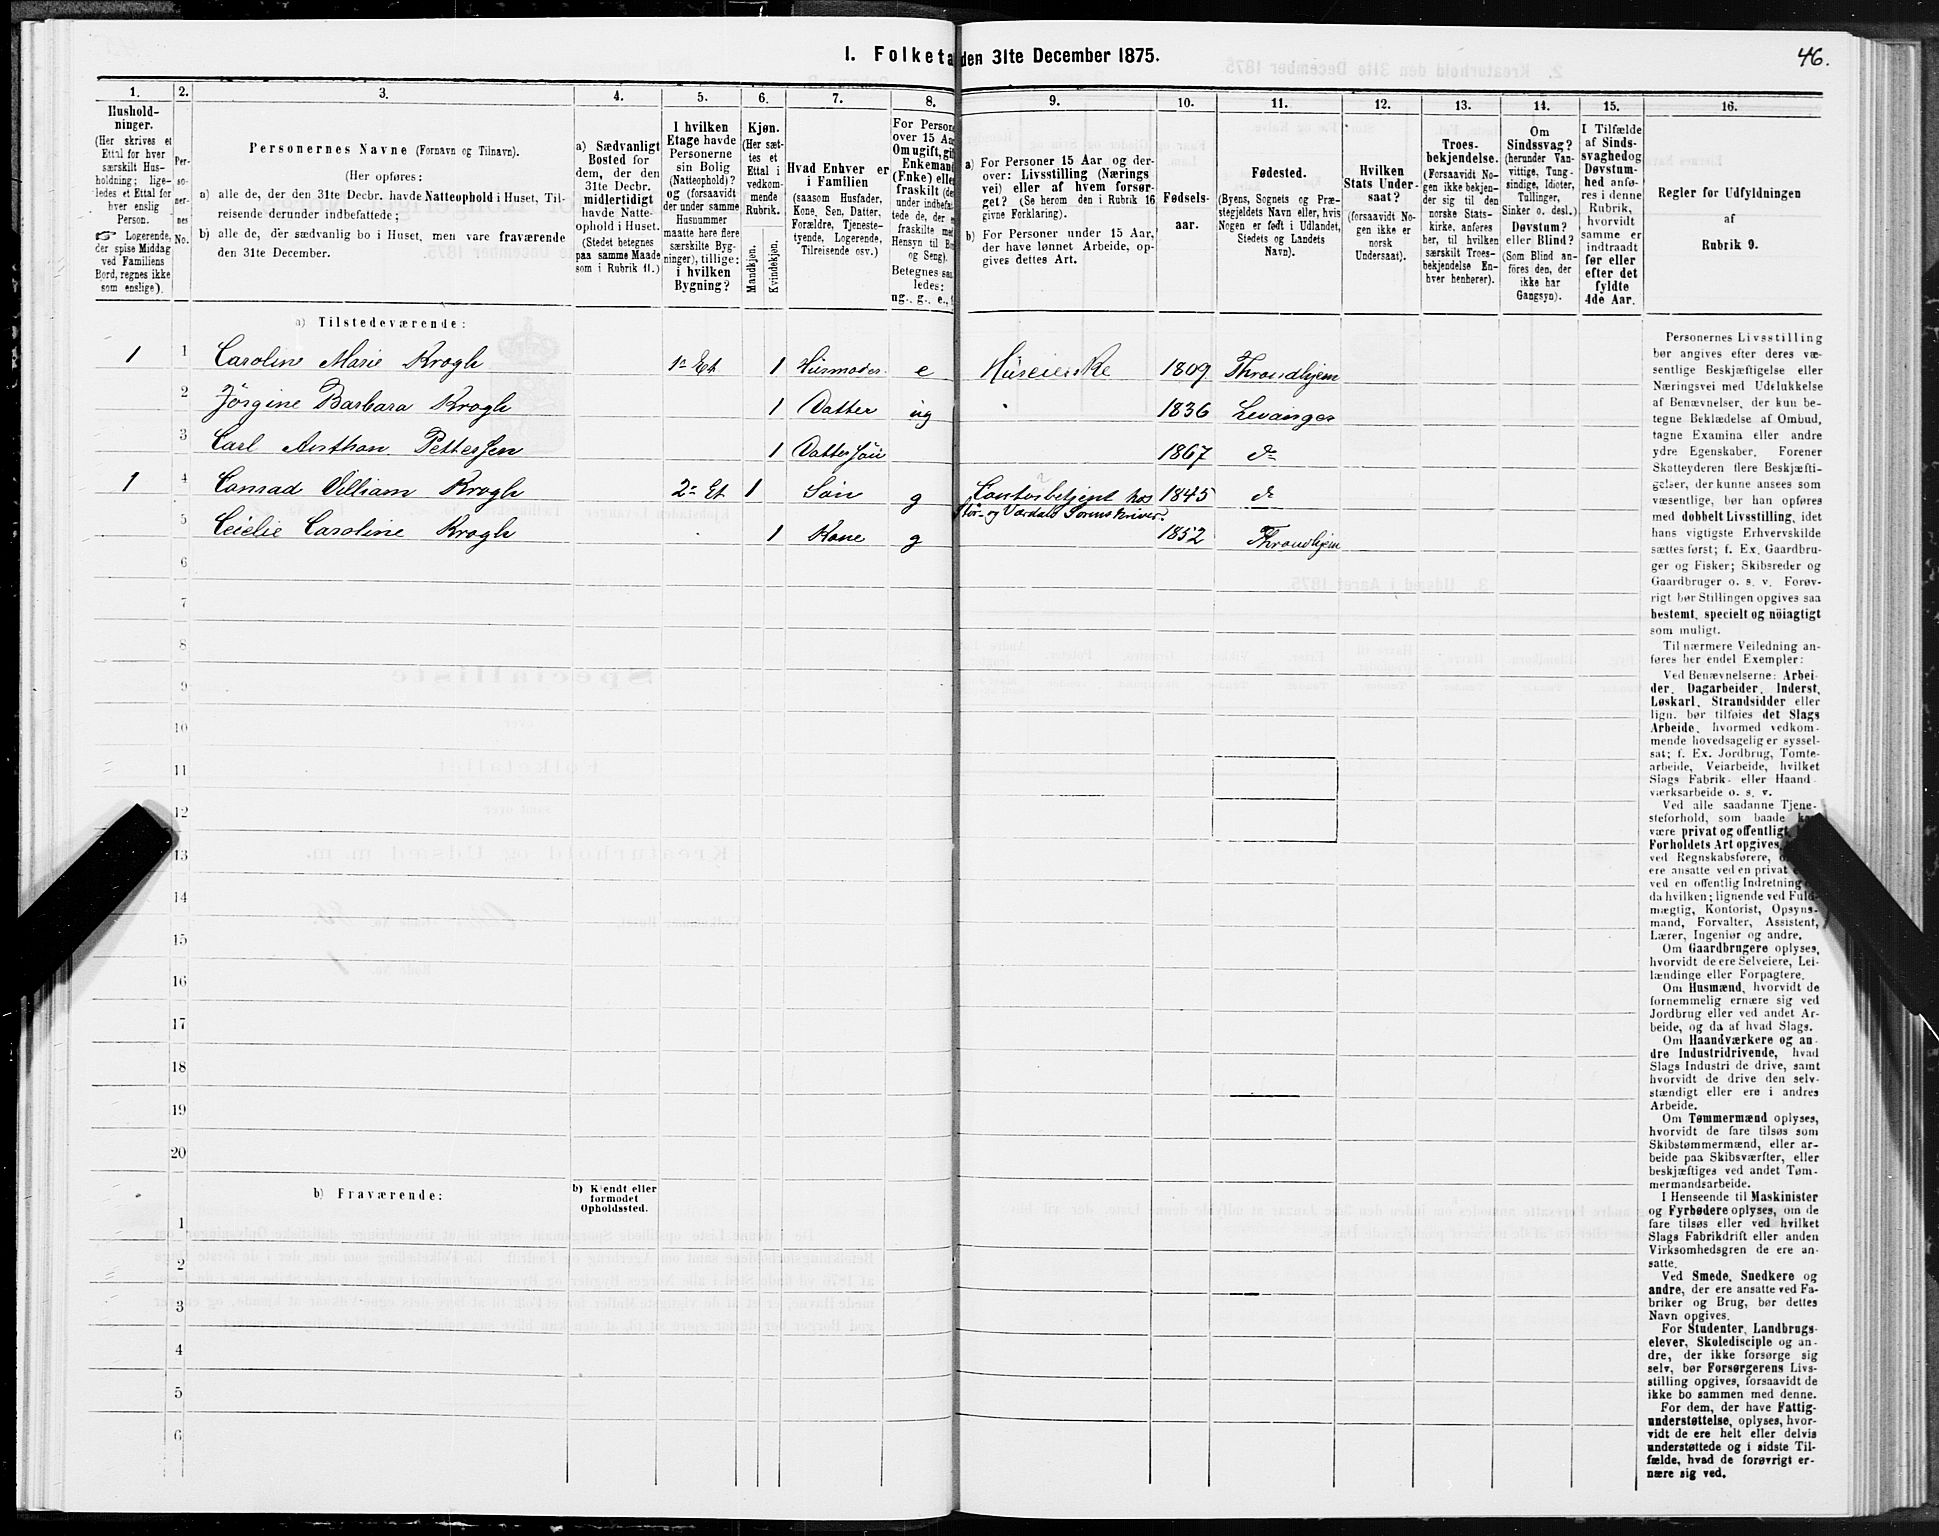 46.
I. Folketa den 31te December 1875.
1. 2. 3. 4. 5. 6. 7. 8. 9. 10. 11. 12. 13. 14. 15. 16.
Hushold-
ninger.
(Her skrives et
Ettal for hver
særskilt Hus-
holdning; lige-
ledes et Ettal for
hver enslig
Person.
Logerende,
der spise Middag
ved Familiens
Bord, regnes ikke
som enslige).
Per-
so-
ner-
nes
No.
Personernes Navne (Fornavn og Tilnavn).
(Her opføres:
a) alle de, der den 31te Decbr. havde Natteophold i Huset, Til-
reisende derunder indbefattede;
b) alle de, der sædvanlig bo i Huset, men vare fraværende
den 31te December.
a) Sædvanligt
Bosted for
dem, der den
31te Decbr.
midlertidigt
havde Natte-
ophold i Huset.
(Stedet betegnes
paa samme Maade
som i Rubrik 11.)
I hvilken
Etage havde
Personerne
sin Bolig
(Natteophold)?
og (forsaavidt
der under samme
Husnummer
maatte høre flere
særskilte Byg-
ninger), tillige:
i hvilken
Bygning?
Kjøn.
(Her sæt-
tes et
Ettal i
vedkom-
mende
Rubrik.
Mandkjøn.
Kvindekjøn.
Hvad Enhver er
i Familien
(saasom Husfader,
Kone, Søn, Datter,
Forældre, Tjeneste-
tyende, Logerende,
Tilreisende osv.)
For Person
over 15 Aa
Om ugift, gi
Enkemand
(Enke) elle
fraskilt (de
under indbefa
tede de, der
fraskilte me
Hensyn til B
og Seng).
Betegnes saa
ledes:
ug., g., e.,
a) For Personer 15 Aar og der-
over: Livsstilling (Nærings
vei) eller af hvem forsør-
get? (Se herom den i Rubrik 16
givne Forklaring).
b) For Personer under 15 Aar,
der have lønnet Arbeide, op-
gives dettes Art.
Fødsels-
aar.
Fødested.
(Byens, Sognets og Præ-
stegjeldets Navn eller, hvis
Nogen er født i Udlandet,
Stedets og Landets
Navn).
Hvilken
Stats Under-
saat?
(forsaavidt No-
gen ikke er
norsk
Undersaat).
Troes-
bekjendelse.
(Forsaavidt No-
gen ikke bekjen-
der sig til den
norske Stats-
kirke, anføres
her, til hvilken
særskilt Troes-
bekjendelse En-
hver henhører).
Om
Sindssvag?
(herunder Van-
vittige, Tung-
sindige, Idioter,
Tullinger,
Sinker o. desl.)
Døvstum?
eller Blind?
(Som Blind an-
føres den, der
ikke har
Gangsyn).
I Tilfælde
af Sinds-
svaghed og
Døvstum-
hed anfø-
res i denne
Rubrik,
hvorvidt
samme er
indtraadt
før eller
efter det
fyldte
4de Aar.
Regler for Udfyldningen
af
Rubrik 9.
a) Tilstedeværende:
1 1 Caroline Marie Krogh 1ste Et 1 Husmoder e Huseierske 1809 Throndhjem
2 Jørgine Barbara Krogh 1 Datter ug 1836 Levanger
3 Carl Anthon Pettersen 1 Dattersøn 1867 do
1 4 Conrad Villiam Krogh 2den Et 1 Søn g Contorbetjent hos 1845 do
Stør- og Værdals Sorenskriver.
5 Ceielie Caroline Krogh 1 Kone g 1852 Throndhjem
6
7
8
9
10
11
12
13
14
15
16
17
18
19
20
b) Fraværende:
b) Kjendt eller
formodet
Opholdssted.
1
2
3
4
5
6
Personernes Livsstilling
bør angives efter deres væ-
sentlige Beskjæftigelse eller
Næringsvei med Udelukkelse
af Benævnelser, der kun be-
tegne Beklædelse af Ombud,
tagne Examina eller andre
ydre Egenskaber. Forener
Skatteyderen flere Beskjæfti-
gelser, der kunne ansees som
væsentlige, bør han opføres
med dobbelt Livsstilling, idet
hans vigtigste Erhvervskilde
sættes først; f. Ex. Gaardbru-
ger og Fisker; Skibsreder og
Gaardbruger o. s. v. Forøv-
rigt bør Stillingen opgives saa
bestemt, specielt og nöiagtigt
som muligt.
Til nærmere Veiledning an-
føres her endel Exempler:
Ved Benævnelserne: Arbei-
der, Dagarbeider, Inderst,
Løskarl, Strandsidder eller
lign. bør tilføies det Slags
Arbeide, hvormed vedkom-
mende hovedsagelig er syssel-
sat; f. Ex. Jordbrug, Tomte-
arbeide, Veiarbeide, hvilket
Slags Fabrik- eller Haand-
værksarbeide o. s. v.
Ved alle saadanne Tjene-
steforhold, som baade
være privat og offentligt,
Forholdets Art opgives,
ved Regnskabsførere,
ere ansatte ved en privat
ved en offentlig Indretning
da hvilken; lignende ved Fuld-
mægtig, Kontorist, Opsyns-
mand, Forvalter, Assistent,
Lærer, Ingeniør og andre.
Om Gaardbrugere oplyses,
hvorvidt de ere Selveiere, Lei-
lændinge eller Forpagtere.
Om Husmænd, hvorvidt de
fornemmelig ernære sig ved
Jordbrug eller ved andet Ar-
beide, og da af hvad Slags.
Om Haandværkere og an-
dre Industridrivende, hvad
Slags Industri de drive, samt
hvorvidt de drive den selv-
stændigt eller ere i andres
Arbeide.
Om Tømmermænd oplyses,
hvorvidt de fare tilsøs som
Skibstømmermænd, eller ar-
beide paa Skibsværfter, eller
beskjæftiges ved andet Tøm-
mermandsarbeide.
I Henseende til Maskinister
og Fyrbødere oplyses, om de
fare tilsøs eller ved hvilket
Slags Fabrikdrift eller anden
Virksomhedsgren de ere an-
satte.
Ved Smede, Snedkere og
andre, der ere ansatte ved Fa-
briker og Brug, bør dettes
Navn opgives.
For Studenter, Landbrugs-
elever, Skoledisciple og an-
dre, der ikke forsørge sig
selv, bør Forsørgerens Livs-
stilling opgives, forsaavidt de
ikke bo sammen med denne.
For dem, der have Fattig-
understøttelse, oplyses, hvor-
vidt de ere helt eller delvis
understøttede og i sidste Til-
fælde, hvad de forøvrigt er-
nære sig ved.